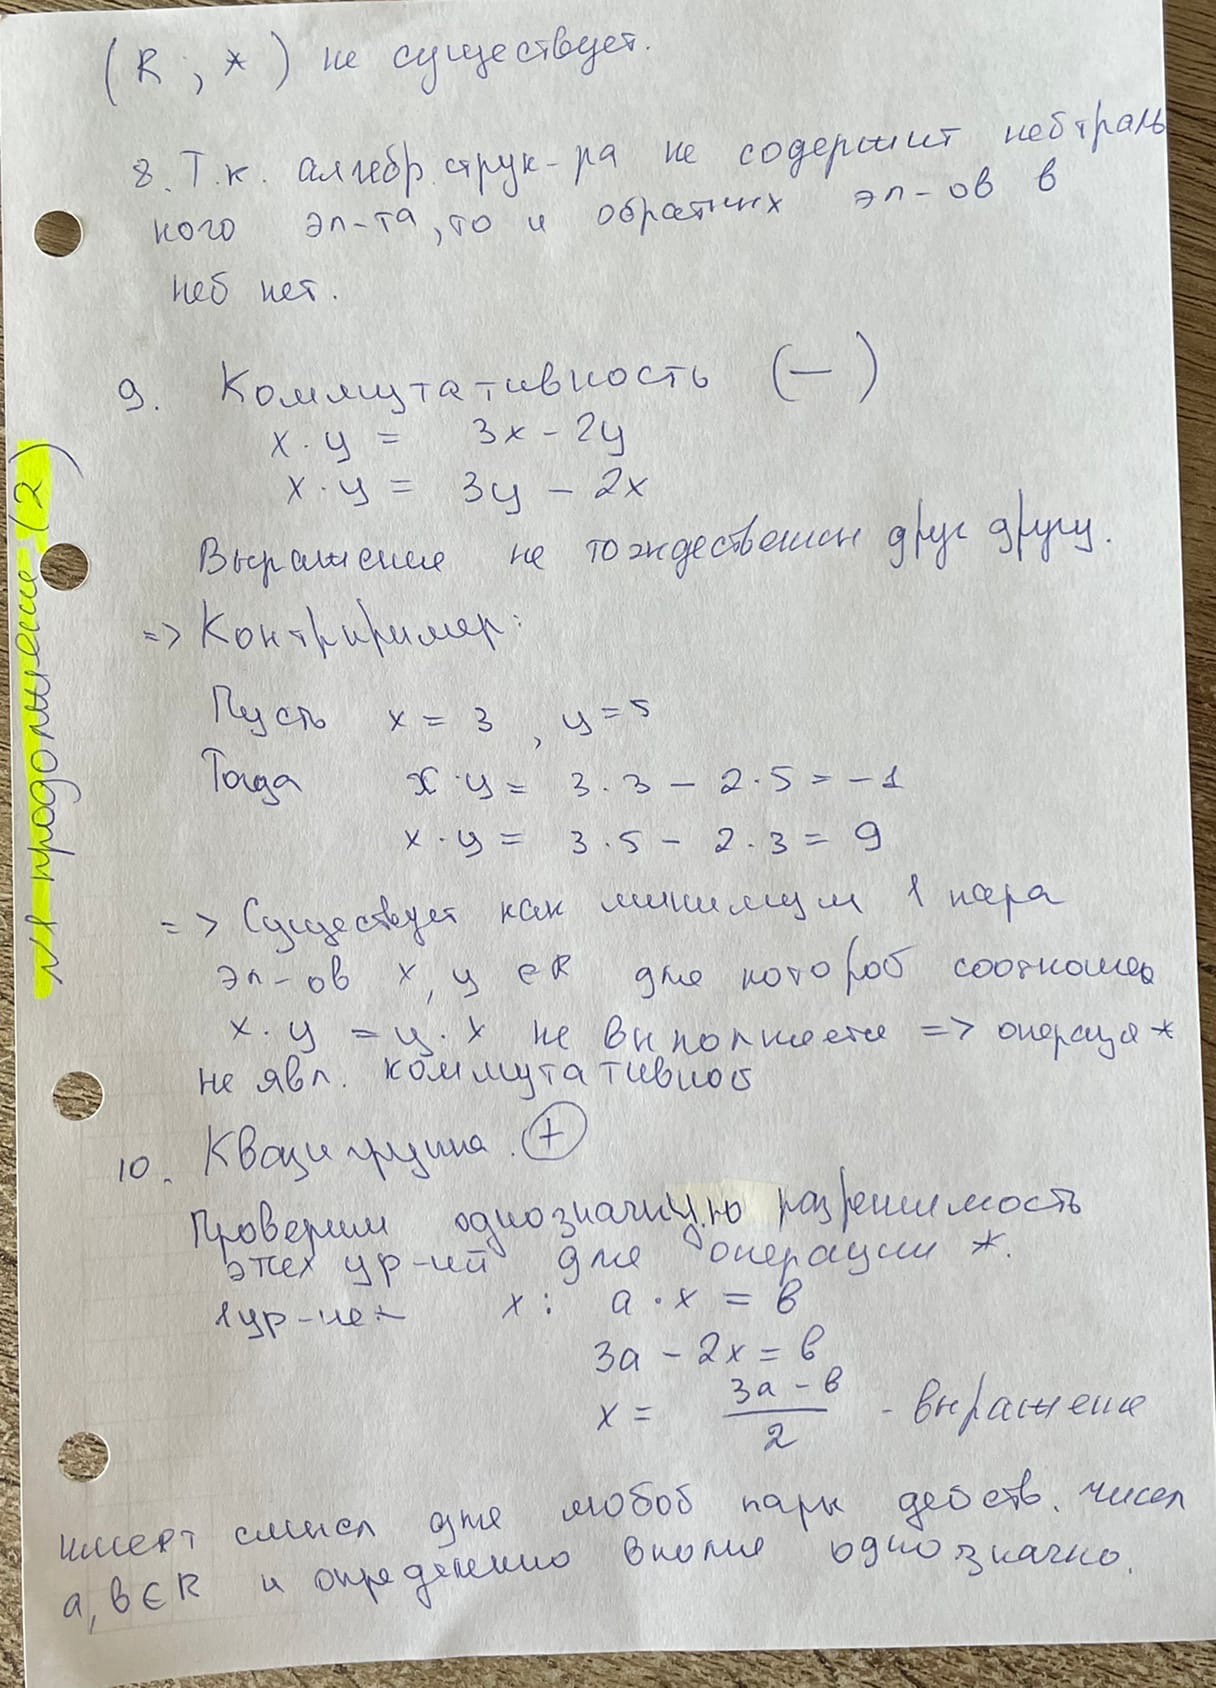 (R ; *) не существует.
8. Т.к. алгебр. струк-ра не содержит нейтраль
ного эл-та, то и обратных эл-ов в
ней нет.
9. Коммутативность (—)
x · y = 3x - 2y
x · y = 3y - 2x
Выражение не тождественны друг другу.
=> Контрпример:
Пусть x = 3 , y = 5
Тогда x · y = 3 · 3 - 2 · 5 = -1
x · y = 3 · 5 - 2 · 3 = 9
=> Существует как минимум 1 пара
эл-ов x, y ∈ R для которой соотношен
x · y = y · x не выполняется => операция *
не явл. коммутативной
10. Квазигруппа. (+)
Проверим однозначную разрешимость
этих ур-ний для операции *.
1 ур-ие - x : a · x = b
3a - 2x = b
x = \frac{3a - b}{2} - выражение
имеет смысл для любой пары действ. чисел
a, b ∈ R и определено вполне однозначно.
№1 продолжение (2)